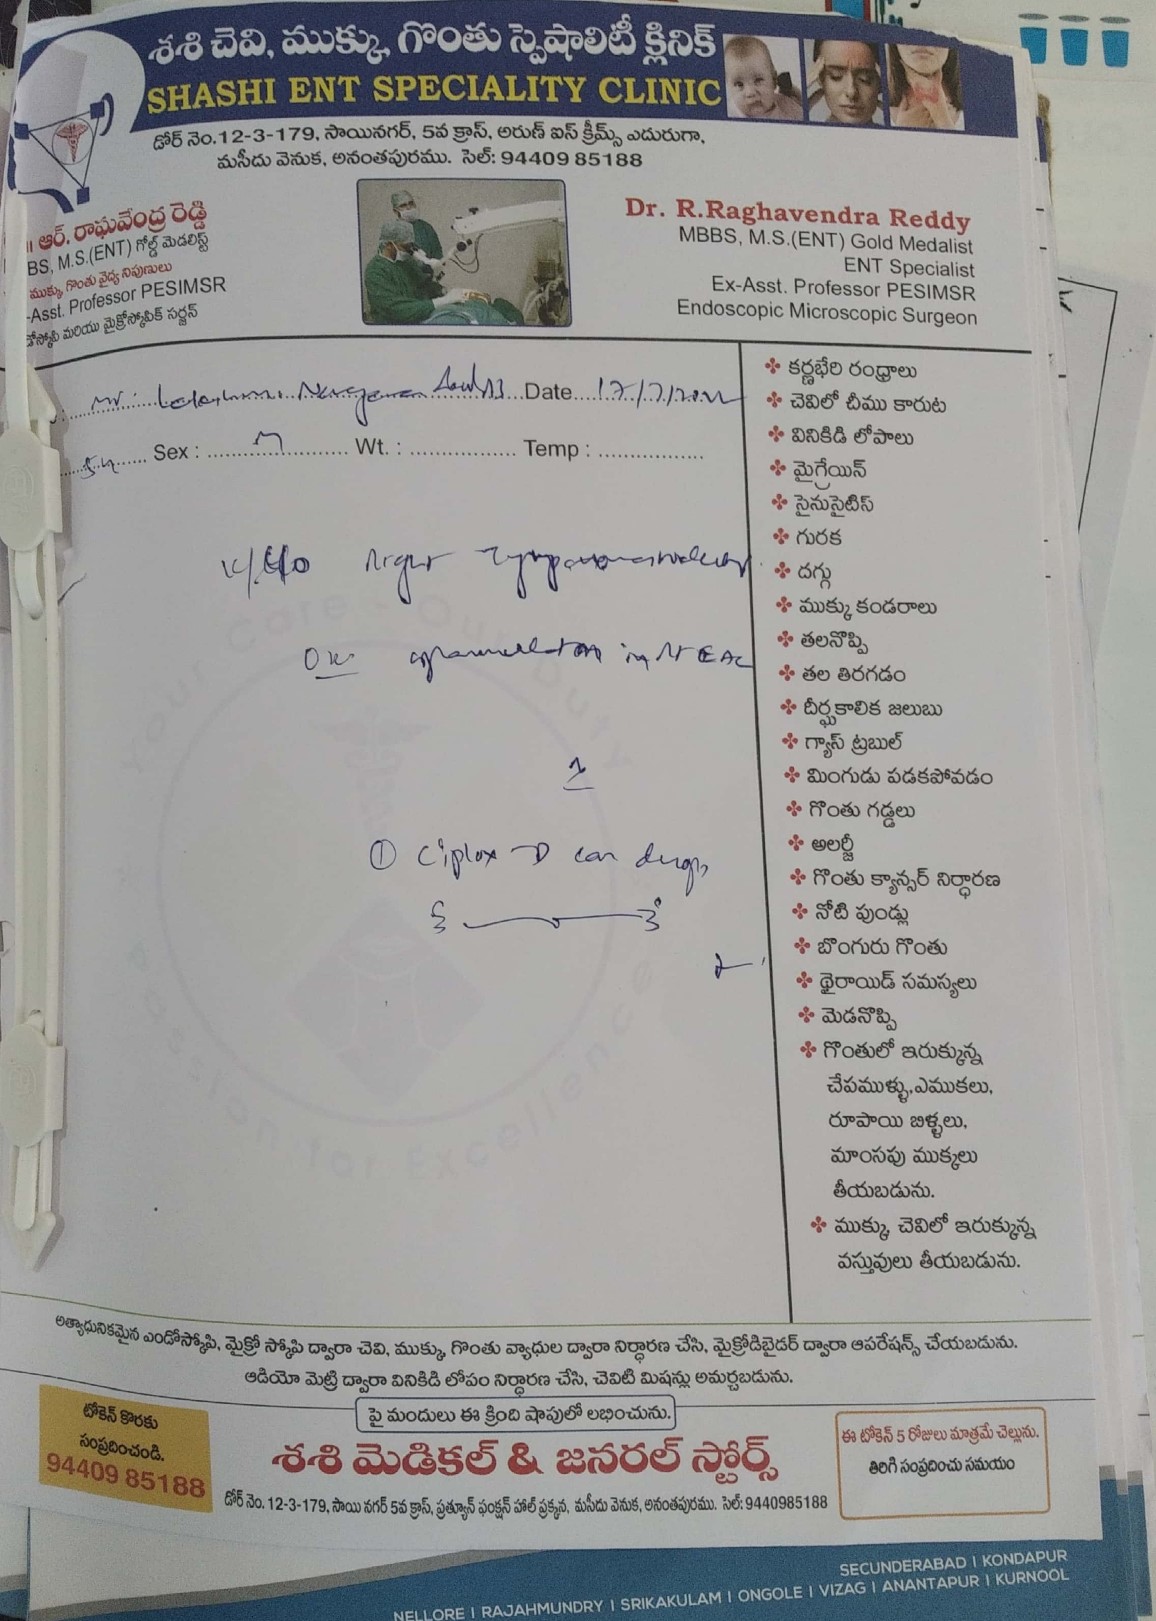 శశి చెవి, ముక్కు, గొంతు స్పెషాలిటీ క్లినిక్
SHASHI ENT SPECIALITY CLINIC
డోర్ నెం.12-3-179, సాయినగర్, 5వ క్రాస్, అరుణ్ ఐస్ క్రీమ్స్ ఎదురుగా,
మసీదు వెనుక, అనంతపురము. సెల్: 94409 85188
ఆర్. రాఘవేంద్ర రెడ్డి
BS, M.S.(ENT) గోల్డ్ మెడలిస్ట్
ముక్కు గొంతు వైద్య నిపుణులు
-Asst. Professor PESIMSR
డోస్కోపి మరియు మైక్రోస్కోపిక్ సర్జన్
Dr. R.Raghavendra Reddy
MBBS, M.S.(ENT) Gold Medalist
ENT Specialist
Ex-Asst. Professor PESIMSR
Endoscopic Microscopic Surgeon
Mr: Date 
Sex : M Wt. : Temp :
Right
in Rt EAC
① Ciplox-D ear drops
3 3
కర్ణభేరి రంధ్రాలు
చెవిలో చీము కారుట
వినికిడి లోపాలు
మైగ్రేయిన్
సైనుసైటిస్
గురక
దగ్గు
ముక్కు కండరాలు
తలనొప్పి
తల తిరగడం
దీర్ఘకాలిక జలుబు
గ్యాస్ ట్రబుల్
మింగుడు పడకపోవడం
గొంతు గడ్డలు
అలర్జీ
గొంతు క్యాన్సర్ నిర్ధారణ
నోటి పుండ్లు
బొంగురు గొంతు
థైరాయిడ్ సమస్యలు
మెడనొప్పి
గొంతులో ఇరుక్కున్న
చేపముళ్ళు,ఎముకలు,
రూపాయి బిళ్ళలు,
మాంసపు ముక్కలు
తీయబడును.
ముక్కు, చెవిలో ఇరుక్కున్న
వస్తువులు తీయబడును.
Your Care - Our Duty
Passion for Excellence
అత్యాధునికమైన ఎండోస్కోపి, మైక్రో స్కోపి ద్వారా చెవి, ముక్కు, గొంతు వ్యాధుల ద్వారా నిర్ధారణ చేసి, మైక్రోడిబైడర్ ద్వారా ఆపరేషన్స్ చేయబడును.
ఆడియో మెట్రి ద్వారా వినికిడి లోపం నిర్ధారణ చేసి, చెవిటి మిషన్లు అమర్చబడును.
టోకెన్ కొరకు
సంప్రదించండి.
94409 85188
పై మందులు ఈ క్రింది షాపులో లభించును.
శశి మెడికల్ & జనరల్ స్టోర్స్
డోర్ నెం. 12-3-179, సాయి నగర్ 5వ క్రాస్, ప్రత్యూస్ ఫంక్షన్ హాల్ ప్రక్కన, మసీదు వెనుక, అనంతపురము. సెల్: 9440985188
ఈ టోకెన్ 5 రోజులు మాత్రమే చెల్లును.
తిరిగి సంప్రదించు సమయం
SECUNDERABAD I KONDAPUR
NELLORE I RAJAHMUNDRY I SRIKAKULAM I ONGOLE I VIZAG I ANANTAPUR I KURNOOL